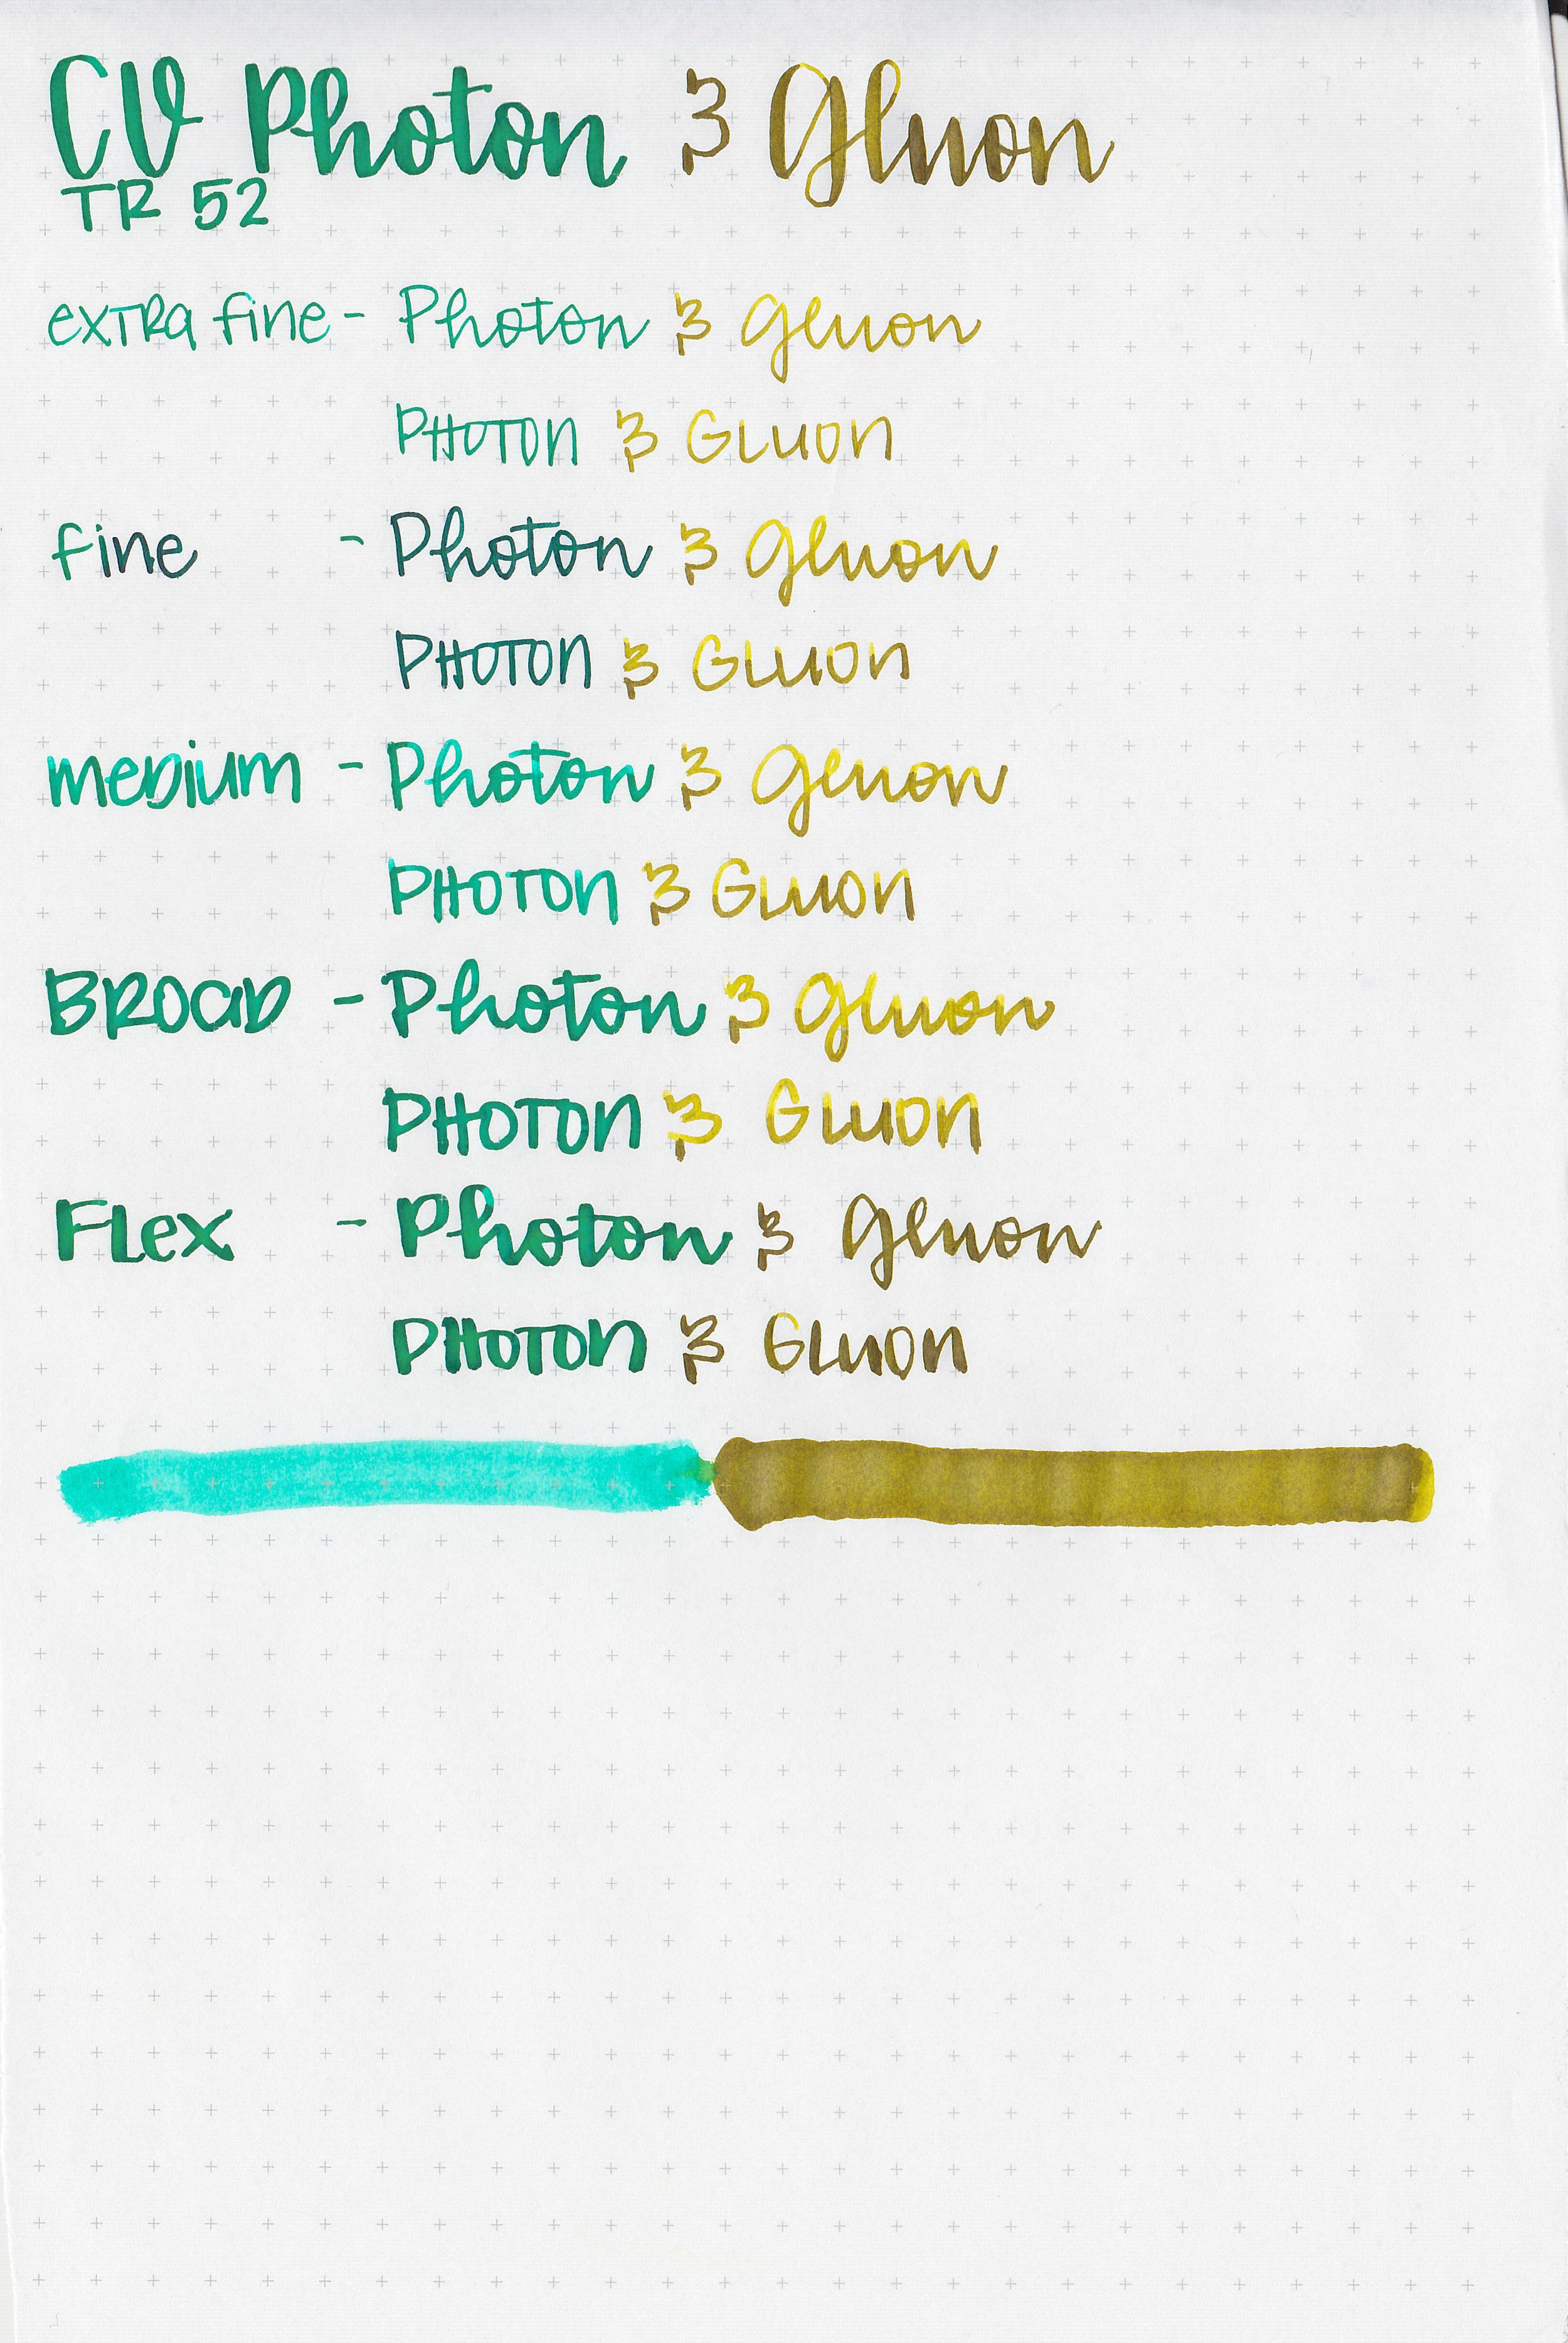 CV Photon & Gluon
TR 52
extra fine - Photon & Gluon
PHOTON & GLUON
fine - Photon & Gluon
PHOTON & GLUON
medium - Photon & Gluon
PHOTON & GLUON
BROAD - Photon & Gluon
PHOTON & GLUON
FLex - Photon & Gluon
PHOTON & GLUON